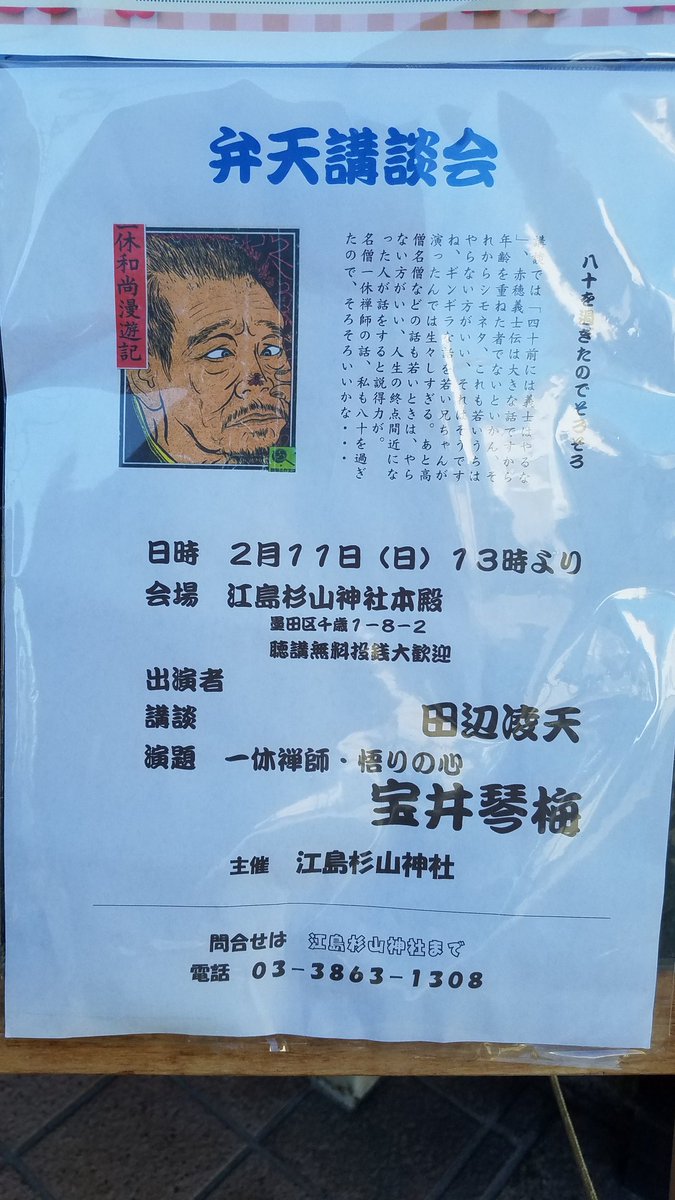 弁天講談会
一休和尚漫遊記
八十を過ぎたのでそろそろ
では「四十前には義士はやるな
」、赤穂義士伝は大きな話ですから
年齢を重ねた者でないといかん、そ
れからシモネタ、これも若いうちは
やらない方がいい、それはそうです
ね、ギンギラな話を若い兄ちゃんが
演ったんでは生々しすぎる。あと高
僧名僧などの話も若いときは、やら
ない方がいい、人生の終点間近にな
った人が話をすると説得力が。
名僧一休禅師の話、私も八十を過ぎ
たので、そろそろいいかな・・・
日時 2月11日(日)13時より
会場 江島杉山神社本殿
墨田区千歳1-8-2
聴講無料投銭大歓迎
出演者
講談 田辺凌天
演題 一休禅師・悟りの心
宝井琴梅
主催 江島杉山神社
問合せは 江島杉山神社まで
電話 03-3863-1308